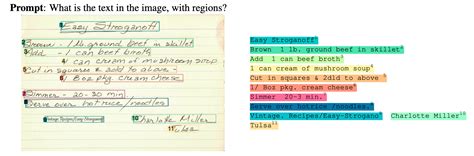 Prompt: What is the text in the image, with regions?
Easy Stroganoff
Brown - 1 lb. ground beef in skillet
Add - 1 can beef broth
1 can cream of mushroom soup
Cut in squares & add to above -
1/ 8oz pkg. cream cheese
Simmer - 20-30 min
Serve over hot rice/noodles
Vintage.Recipes/Easy-Stroganoff
Charlotte Miller
Tulsa
Easy Stroganoff
Brown 1 lb. ground beef in skillet
Add 1 can beef broth
1 can cream of mushroom soup
Cut in squares & 2dld to above
1/ 8oz pkg. cream cheese
Simmer 20-3 min.
Serve over hotrice /noodles.
Vintage. Recipes/Easy-Strogano Charlotte Miller
Tulsa